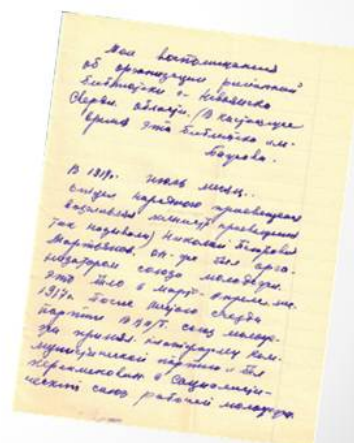 Мои воспоминания
об организации районной
библиотеки г. Невьянска
Сверд. области. (В настоящее
время это библиотека им.
В 1919г. июль месяц..
отдел народного просвещения
возглавлял
так называли) Николай Петрович
Мартьянов. он-же был орга-
низатором союза молодежи.
это было в март-апреле м-це
1917г. после
партии союз молоде-
жи принял платформу ком-
мунистической партии и был
переименован в социалисти-
ческий союз рабочей молодежи